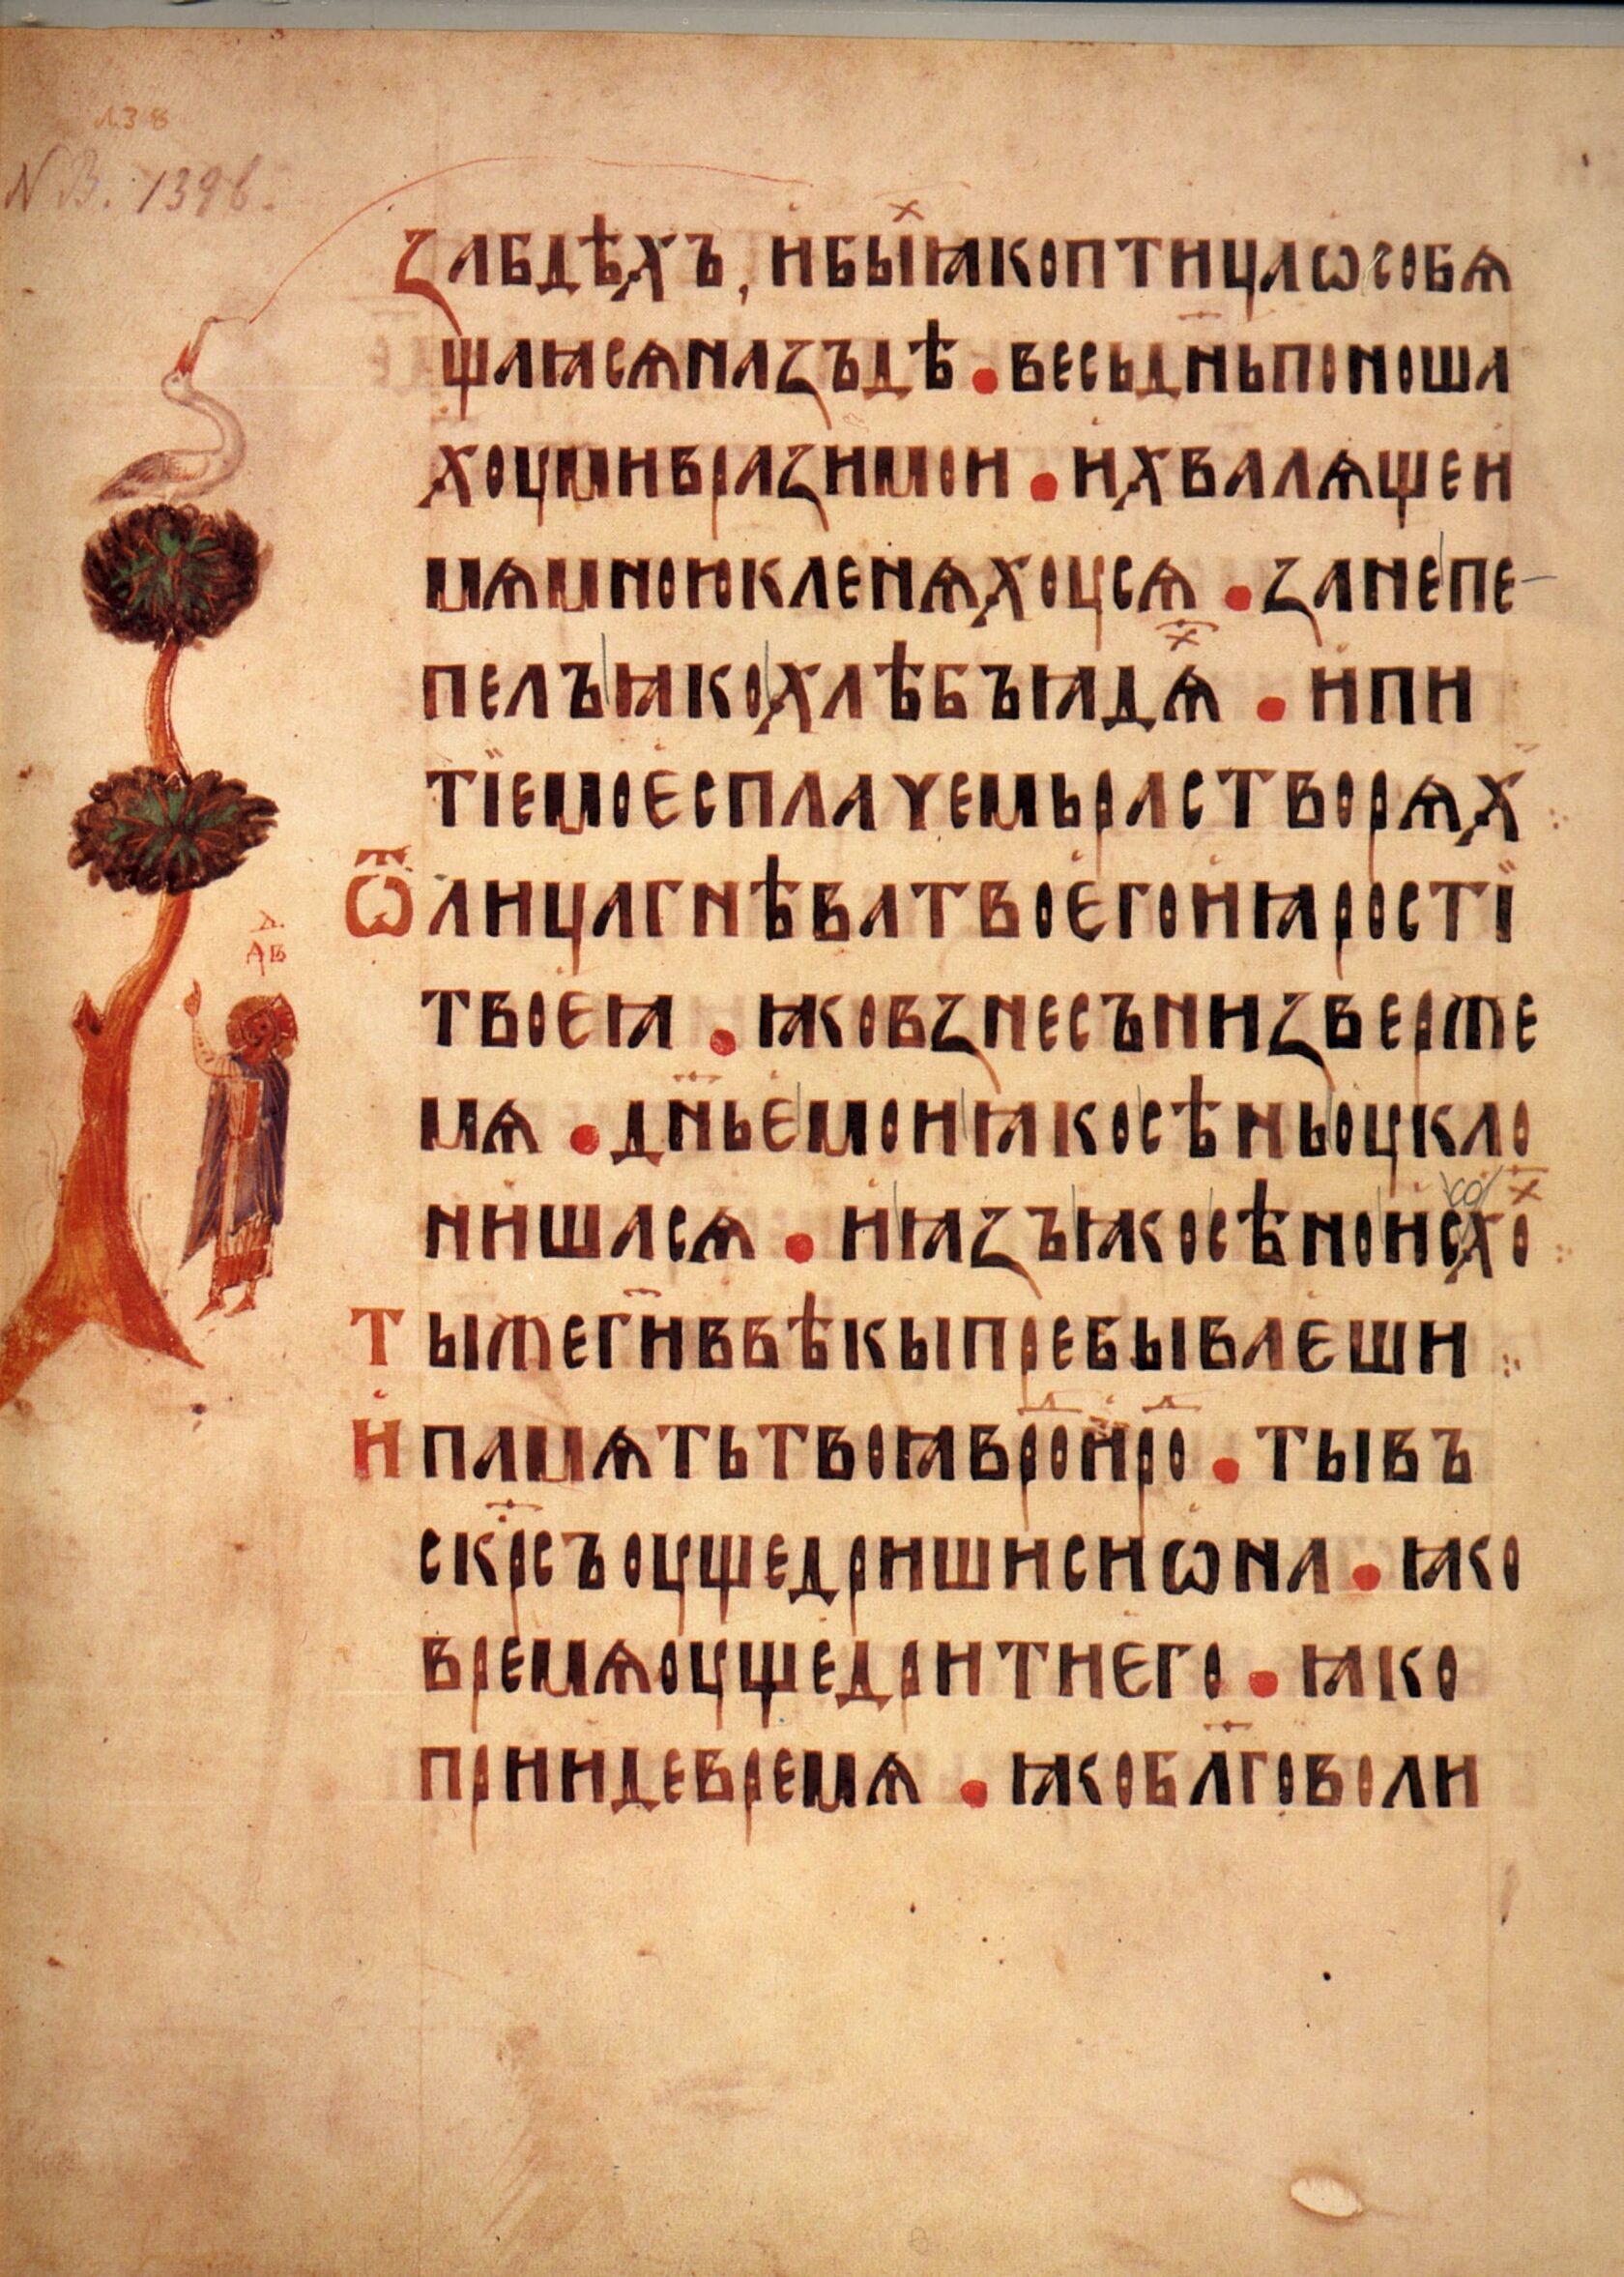 л. 38
NB. 1396.
Ꙁабдѣхъ, и бых ꙗко птица ѡсобѧ
щаꙗсѧ на ꙁъдѣ • весь дн҃ь поноша
хоуми враꙁи мои • и хвалѧщеи
мѧ мною кленѧхоусѧ • ꙁане пе
пелъ ꙗко хлѣбъ ꙗдѧх • и пи
тїе мое с плачемь растворѧх
Ѿ лица гнѣва твоего и ꙗрості
твоеꙗ • ꙗко вꙁнесъ ниꙁверже
мѧ • дн҃ье мои ꙗко сѣнь оукло
нишасѧ • и ꙗꙁъ ꙗко сѣно исхох
Ты же г҃и в вѣкы пребываеши
И памѧть твоꙗ в род и род • ты въ
скр҃съ оущедриши сиѡна • ꙗко
времѧ оущедрити его • ꙗко
прииде времѧ • ꙗко бл҃говоли
Дав